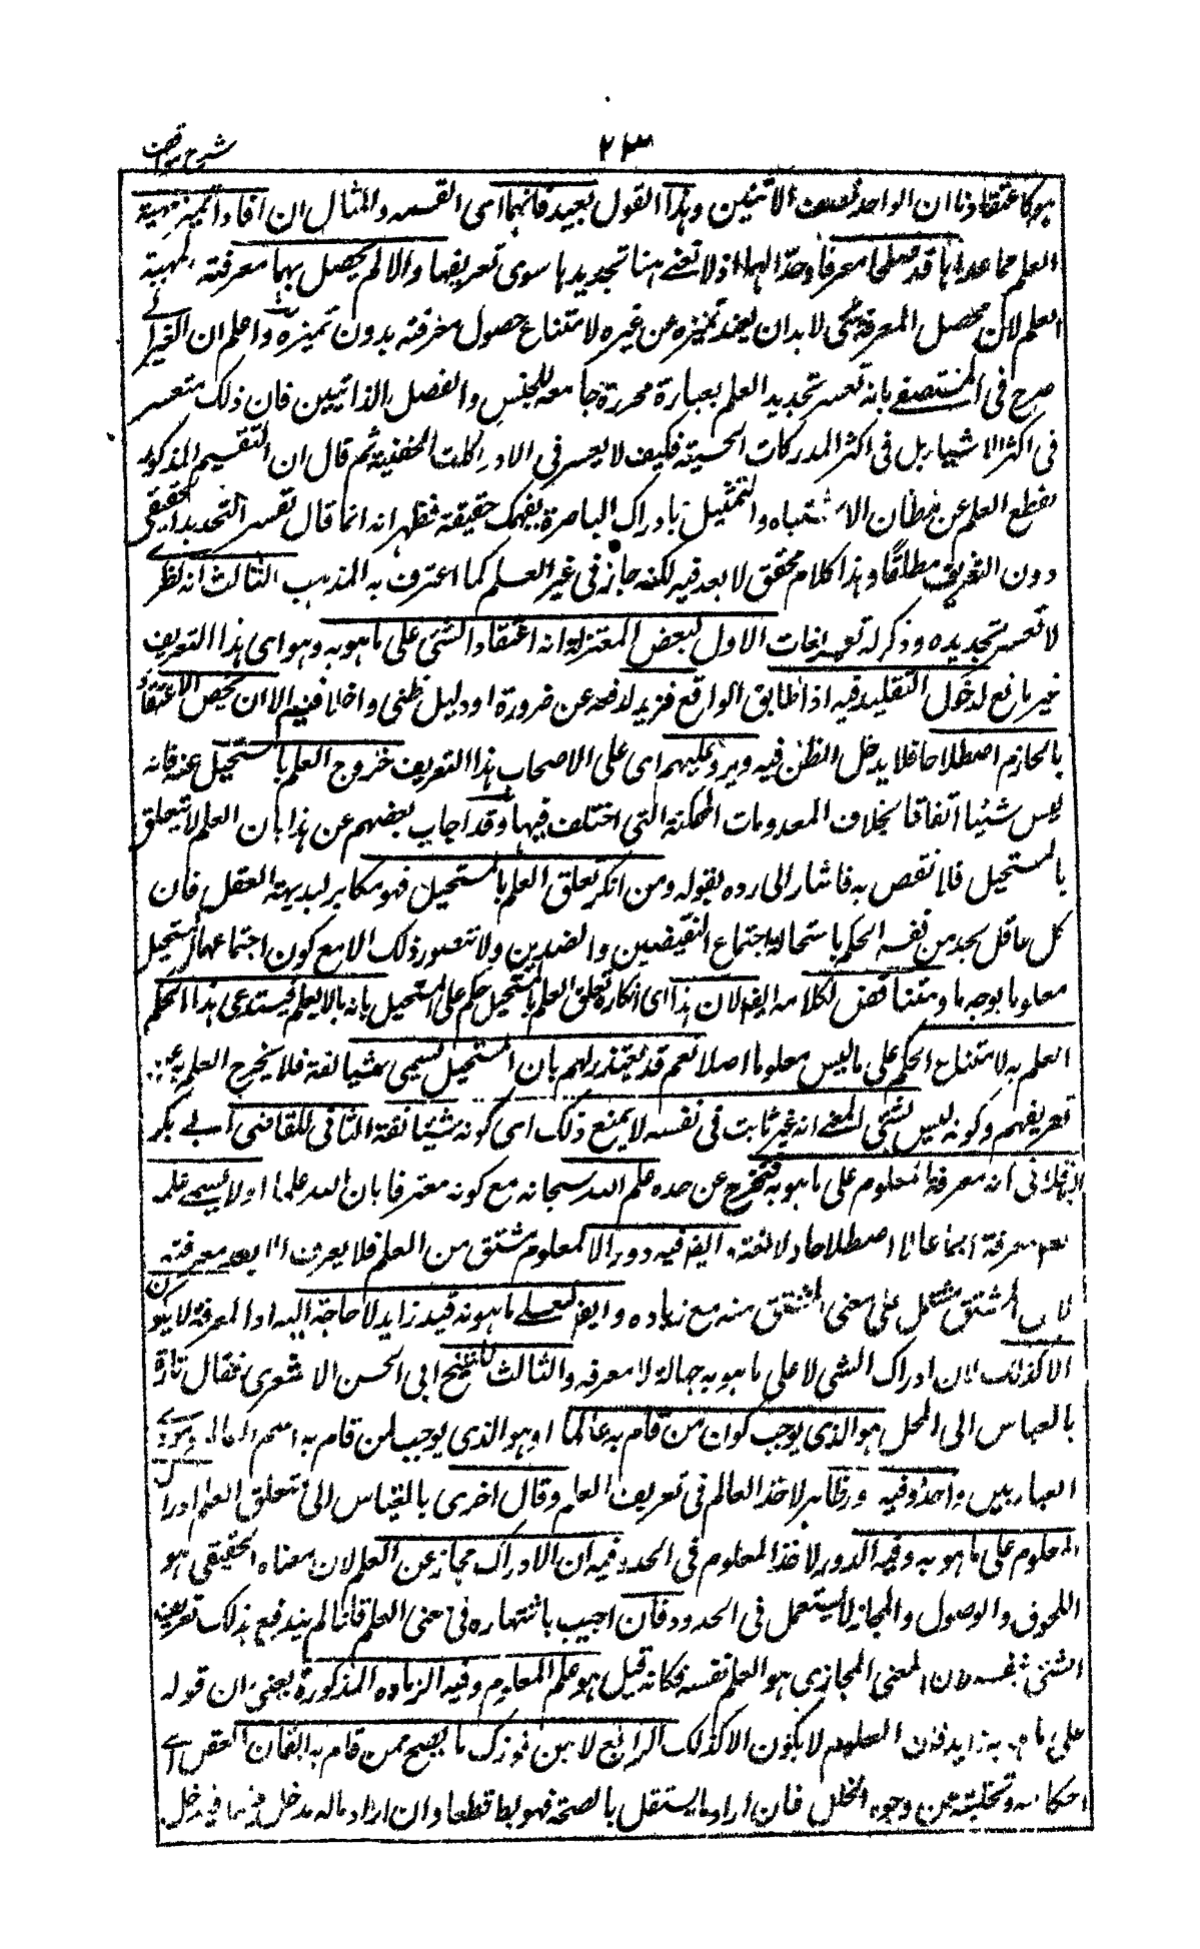 شرح مواقف
٢٣
هو كاعتقادنا ان الواحد نصف الاثنين وهذا القول بعيد فانهما اى القسمة والمثال ان افادا تميز مهية
العلم عما عداها فقد صلحا معرفا وحدّا لها اذ لا نعنى هنا بتحديدها سوى تعريفها والا لم يحصل بهما معرفته لمهية
العلم لان محصل المعرفة بشئ لا بد ان يفيد تميزه عن غيره لامتناع حصول معرفته بدون تميزه واعلم ان الغزالى
صرح فى المستصفى بانه تعسر تحديد العلم بعبارة محررة جامعة للجنس والفصل الذاتيين فان ذلك متعسر
فى اكثر الاشياء بل فى اكثر المدركات الحسية فكيف لا يعسر فى الادراكات الخفية ثم قال ان التقسيم المذكور
يقطع العلم عن مظان الاشتباه والتمثيل بادراك الباصرة يفهمك حقيقة فظهر انه انما قال تعسر التحديد الحقيقى
دون التعريف مطلقا وهذا كلام محقق لا بعد فيه لكنه جاز فى غير العلم كما اعترف به المذهب الثالث انه نظرى
لا تعسر تحديده وذكر له تعريفات الاول لبعض المعتزلة انه اعتقاد الشئ على ما هو به وهو اى هذا التعريف
غير مانع لدخول التقليد فيه اذا طابق الواقع فزيد لدفعه عن ضرورة او دليل ظنى واخلا فنيم الا ان يخص الاعتقاد
بالجازم اصطلاحا فلا يدخل الظن فيه ويرد عليهم اى على الاصحاب هذا التعريف خروج العلم بالمستحيل عنه فانه
ليس شيئا اتفاقا بخلاف المعدومات الممكنة التى اختلف فيها وقد اجاب بعضهم عن هذا بان العلم لا يتعلق
بالمستحيل فلا نقص به فاشار الى رده بقوله ومن انكر تعلق العلم بالمستحيل فهو مكابر لبديهة العقل فان
كل عاقل يجد من نفسه الحكم باستحالة اجتماع النقيضين والضدين ولا تتصور ذلك الا مع كون اجتماعهما المستحيل
معلوما بوجه ما ومتناقض لكلامه ايضا لان هذا اى انكاره تعلق العلم بالمستحيل حكم على المستحيل بانه لا يعلم فيستدعى هذا الحكم
العلم به لامتناع الحكم على ما ليس معلوما اصلا نعم قد يعتذر لهم بان المستحيل يسمى شيئا لغة فلا يخرج العلم به عن
تعريفهم وكونه ليس بشئ بمعنى انه غير ثابت فى نفسه لا يمنع ذلك اى كونه شيئا لغة الثانى للقاضى ابى بكر
الباقلانى انه معرفة المعلوم على ما هو به فيخرج عن حده علم الله سبحانه مع كونه معترفا بان لله علما اذ لا يسمى علمه
تعالى معرفة اجماعا لا اصطلاحا ولا لغة وايضا فيه دور اذ المعلوم مشتق من العلم فلا يعرف الا بعد معرفته
لان المشتق مشتمل على معنى المشتق منه مع زيادة وايضا فعلى ما هو به قيد زايد لا حاجة اليه اذ المعرفة لا يكون
الا كذلك لان ادراك الشئ لا على ما هو به جهالة لا معرفة والثالث للشيخ ابى الحسن الاشعرى فقال تارة
بالقياس الى المحل هو الذى يوجب كون من قام به عالما او هو الذى يوجب لمن قام به اسم العالم ومودى
العبارتين واحد وفيه دور ظاهر لاخذ العالم فى تعريف العلم وقال اخرى بالقياس الى متعلق العلم ادراك
المعلوم على ما هو به وفيه الدور لاخذ المعلوم فى الحد وفيه ان الادراك مجاز عن العلم لان معناه الحقيقى هو
اللحوق والوصول والمجاز لا يستعمل فى الحدود فان اجيب باشتهاره فى معنى العلم قلنا لم يندفع بذلك تعريف
الشئ بنفسه لان المعنى المجازى هو العلم نفسه فكانه قيل هو علم المعلوم وفيه الزيادة المذكورة يعنى ان قوله
على ما هو به زايد فان المعلوم لا يكون الا كذلك الرابع لابن فورك ما يصح ممن قام به اتقان الفعل اى
احكامه وتخليته عن وجوه الخلل فان اراد ما يستقل بالصحة فهو بط قطعا وان اراد ماله مدخل فيها فيدخل